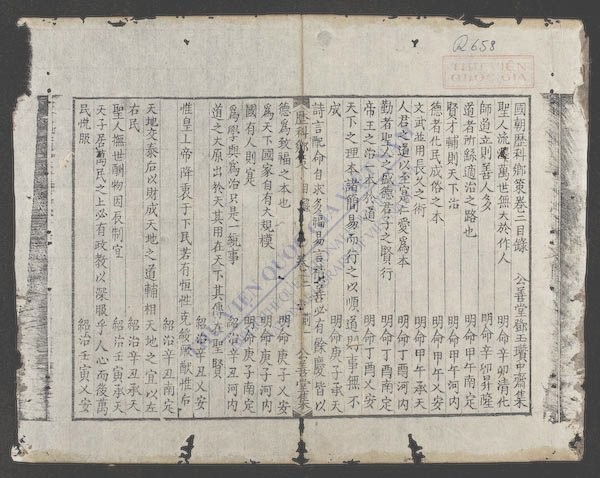 Q658
THƯ VIỆN
QUỐC GIA
國朝歷科鄉策卷三目錄 公善堂鄧玉瓚中齋集
聖人流澤萬世無大於作人 明命辛卯清化
師道立則善人多 明命辛卯昇隆
道者所繇適治之路也 明命甲午南定
賢才輔則天下治 明命甲午河內
德者化民成俗之本 明命甲午承天
文武並用長久之術 明命甲午乂安
人君之道以至寔仁愛為本 明命丁酉河內
勤者聖人之盛德君子之賢行 明命丁酉南定
帝王之治本於道 明命丁酉乂安
天下之理本諸簡易而行之以順道則事無不
成 明命庚子承天
詩言配命自求多福易言積善必有餘慶皆以
歷科鄉策 目錄 卷三 公善堂集
德為教福之本也 明命庚子乂安
為天下國家自有大規模 明命庚子河內
國有人則寔 明命庚子南定
為學與為治只是一統事 紹治辛丑河內
道之大原出於天其用在天下其傳在聖賢
紹治辛丑乂安
惟皇上帝降衷于下民若有恒性克綏厥猷惟后
紹治辛丑南定
天地交泰后以財成天地之道輔相天地之宜以左
右民 紹治辛丑承天
聖人撫世酬物因辰制宜 紹治壬寅承天
天子居萬民之上必有政教以深服乎人心而後萬
民悅服 紹治壬寅乂安